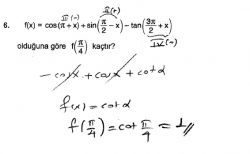 II(+)
III(-)
6. f(x) = cos(π + x) + sin(π/2 - x) - tan(3π/2 + x)
IV(-)
olduğuna göre f(π/4) kaçtır?
- cosx + cosx + cotx
f(x) = cotx
f(π/4) = cot π/4 = 1 //